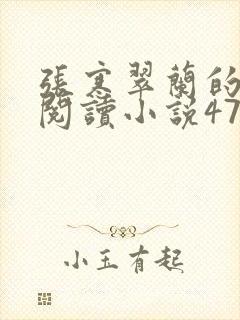 張寒翠蘭的
閱讀小説47
小玉有起